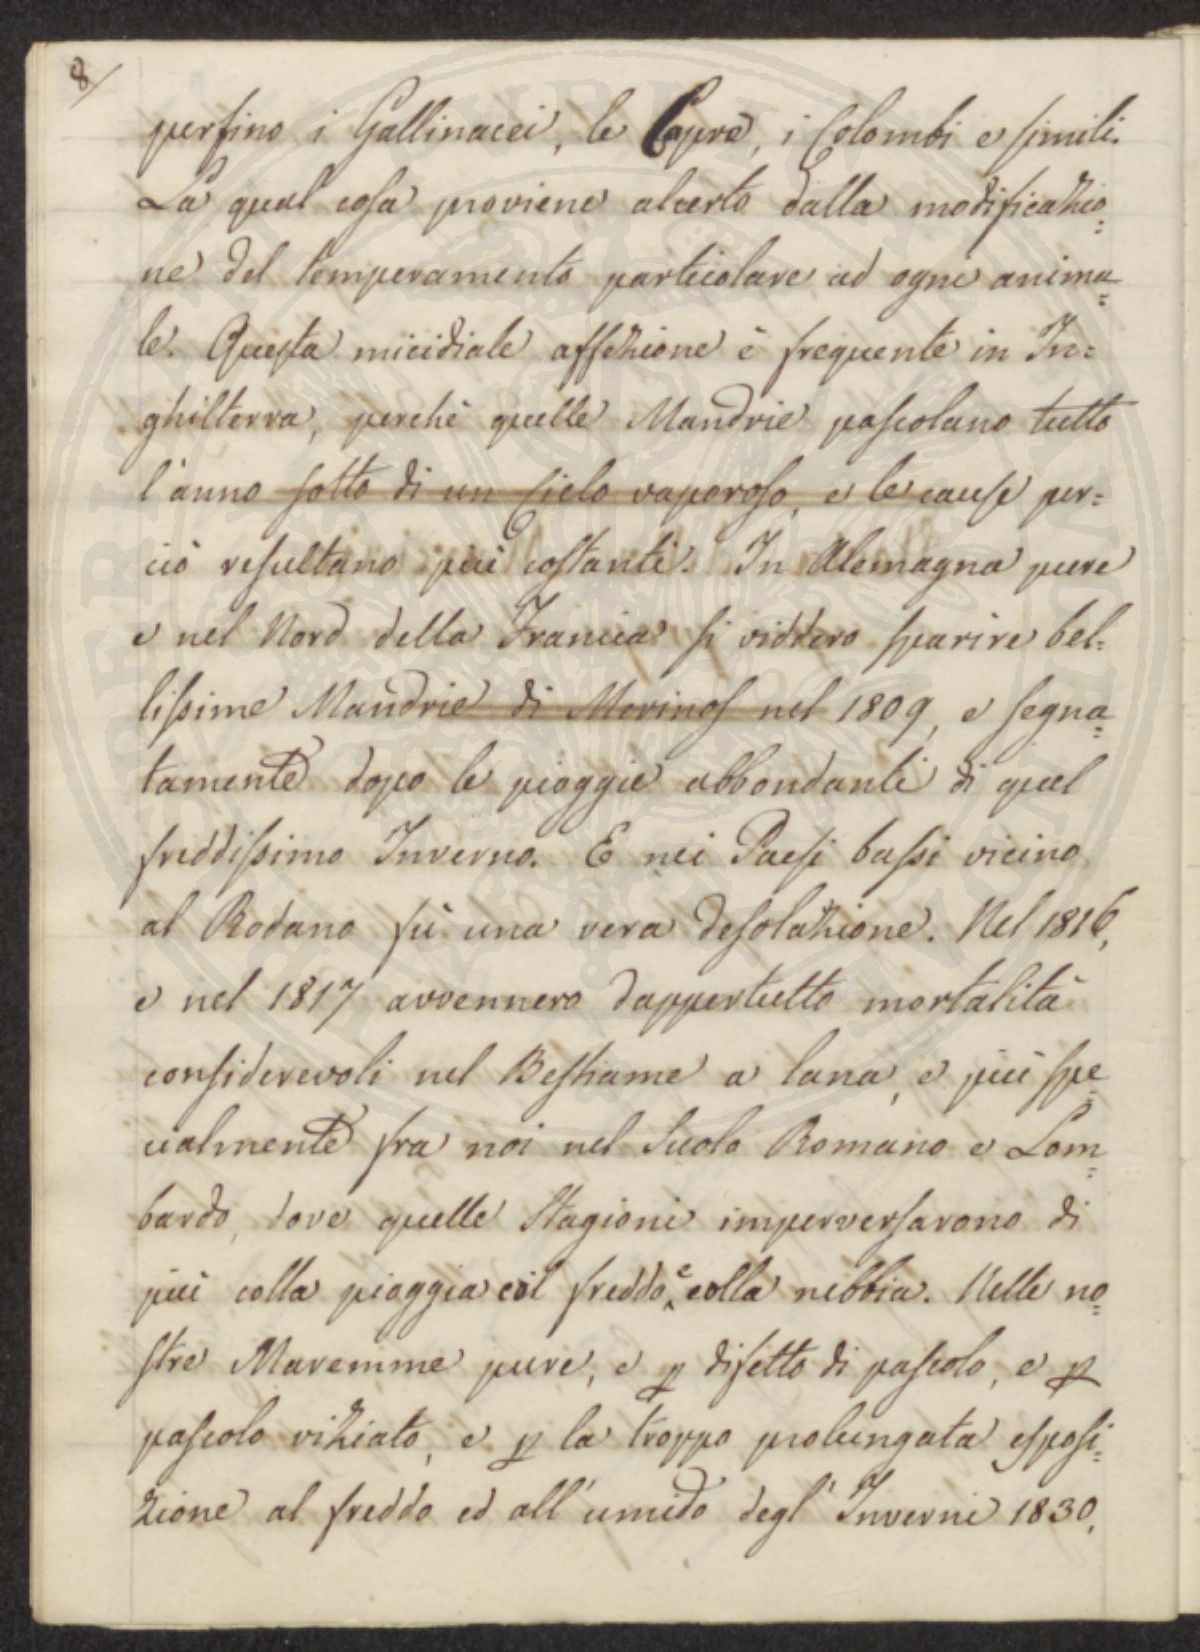 8/
perfino i Gallinacei, le Capre, i Colombi e simili.
La qual cosa proviene alcerto dalla modificazio=
ne del temperamento particolare ad ogni anima=
le. Questa micidiale affezione è frequente in In=
ghilterra, perchè quelle Mandrie pascolano tutto
l'anno sotto di un Cielo vaporoso, e le cause per=
ciò resultano più costanti. In Alemagna pure
e nel Nord della Francia si viddero sparire bel=
lissime Mandrie di Merinos nel 1809, e segna=
tamente dopo le pioggie abbondanti di quel
freddissimo Inverno. E nei Paesi bassi vicino
al Rodano fù una vera desolazione. Nel 1816,
e nel 1817 avvennero dappertutto mortalità
considerevoli nel Bestiame a lana, e più spe=
cialmente fra noi nel Suolo Romano e Lom=
bardo, dove quelle Stagioni imperversarono di
più colla pioggia col freddo, e colla nebbia. Nelle no=
stre Maremme pure, e p difetto di pascolo, e p
pascolo viziato, e p la troppo prolungata esposi=
zione al freddo ed all'umido degl'Inverni 1830,